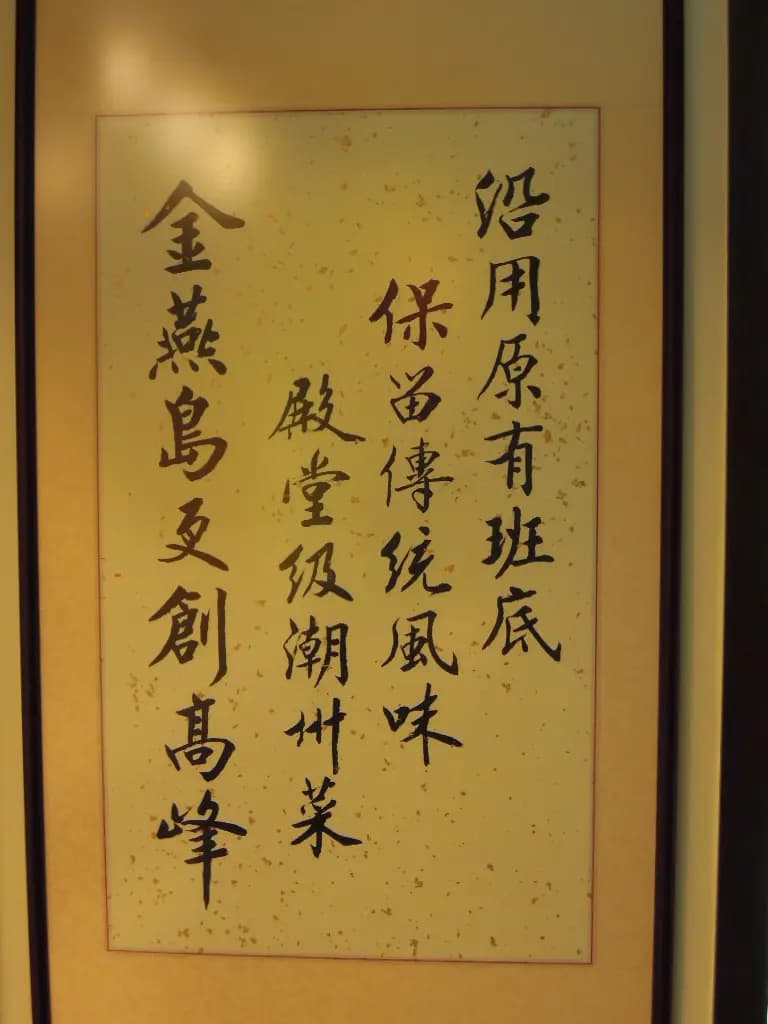 沿用原有班底
保留傳統風味
殿堂级潮州菜
金燕島更創高峰